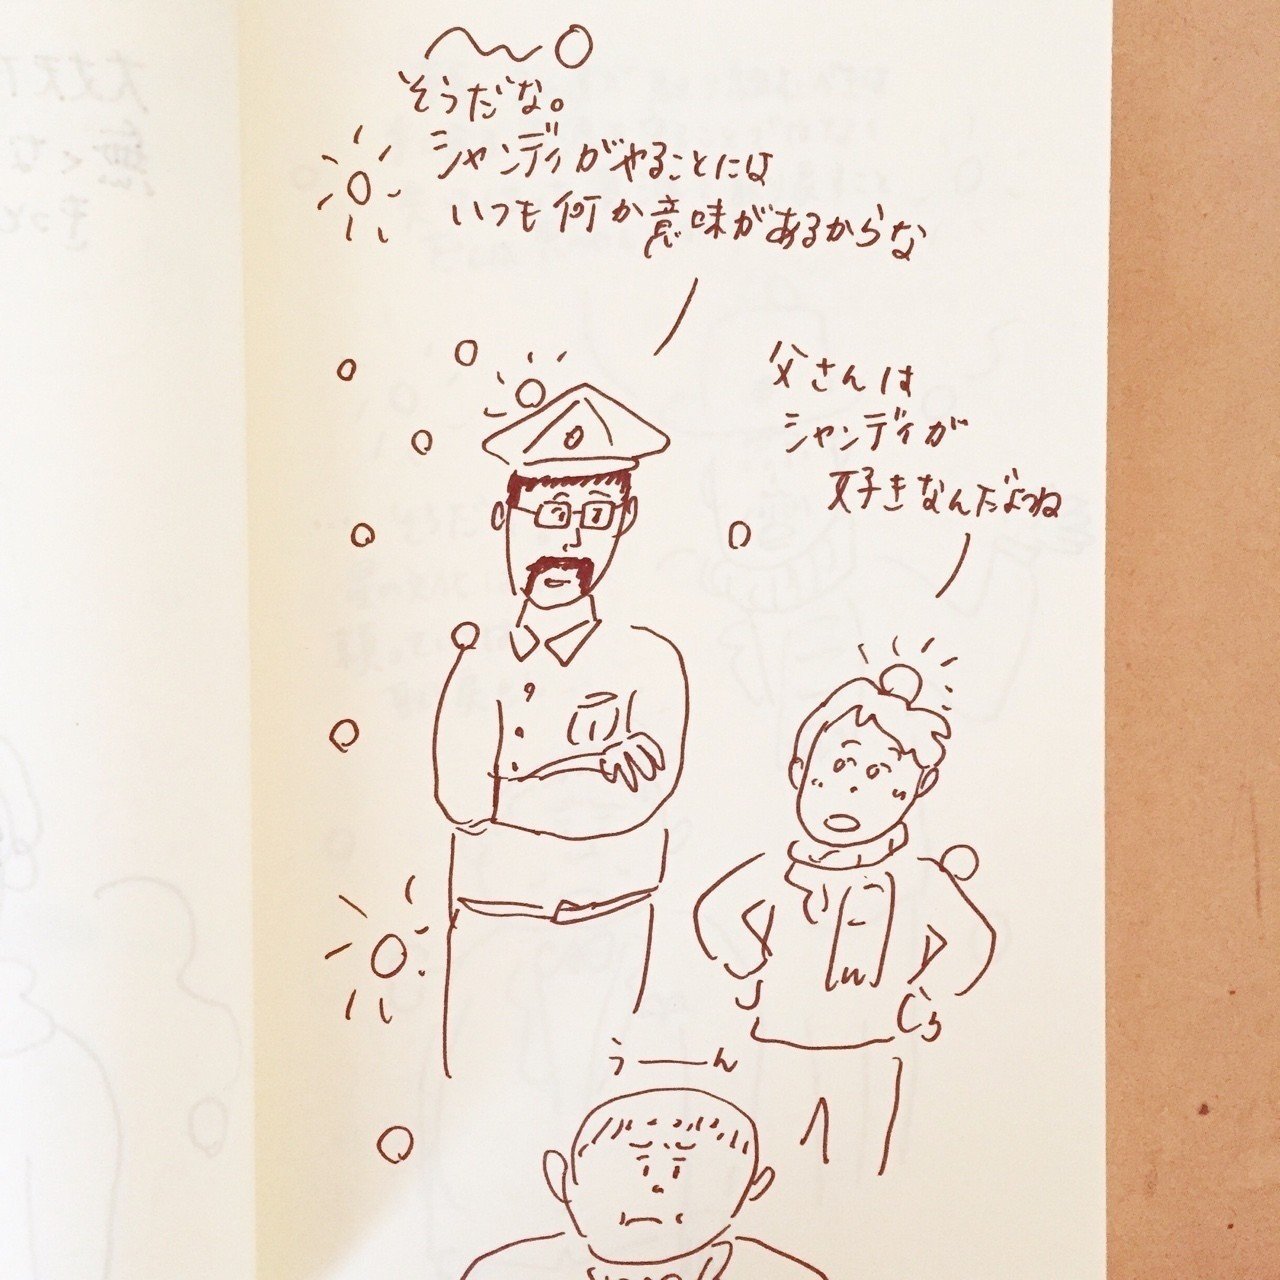 そうだな。
シャンディがやることには
いつも何か意味があるからな
父さんは
シャンディが
好きなんだよね
うーん